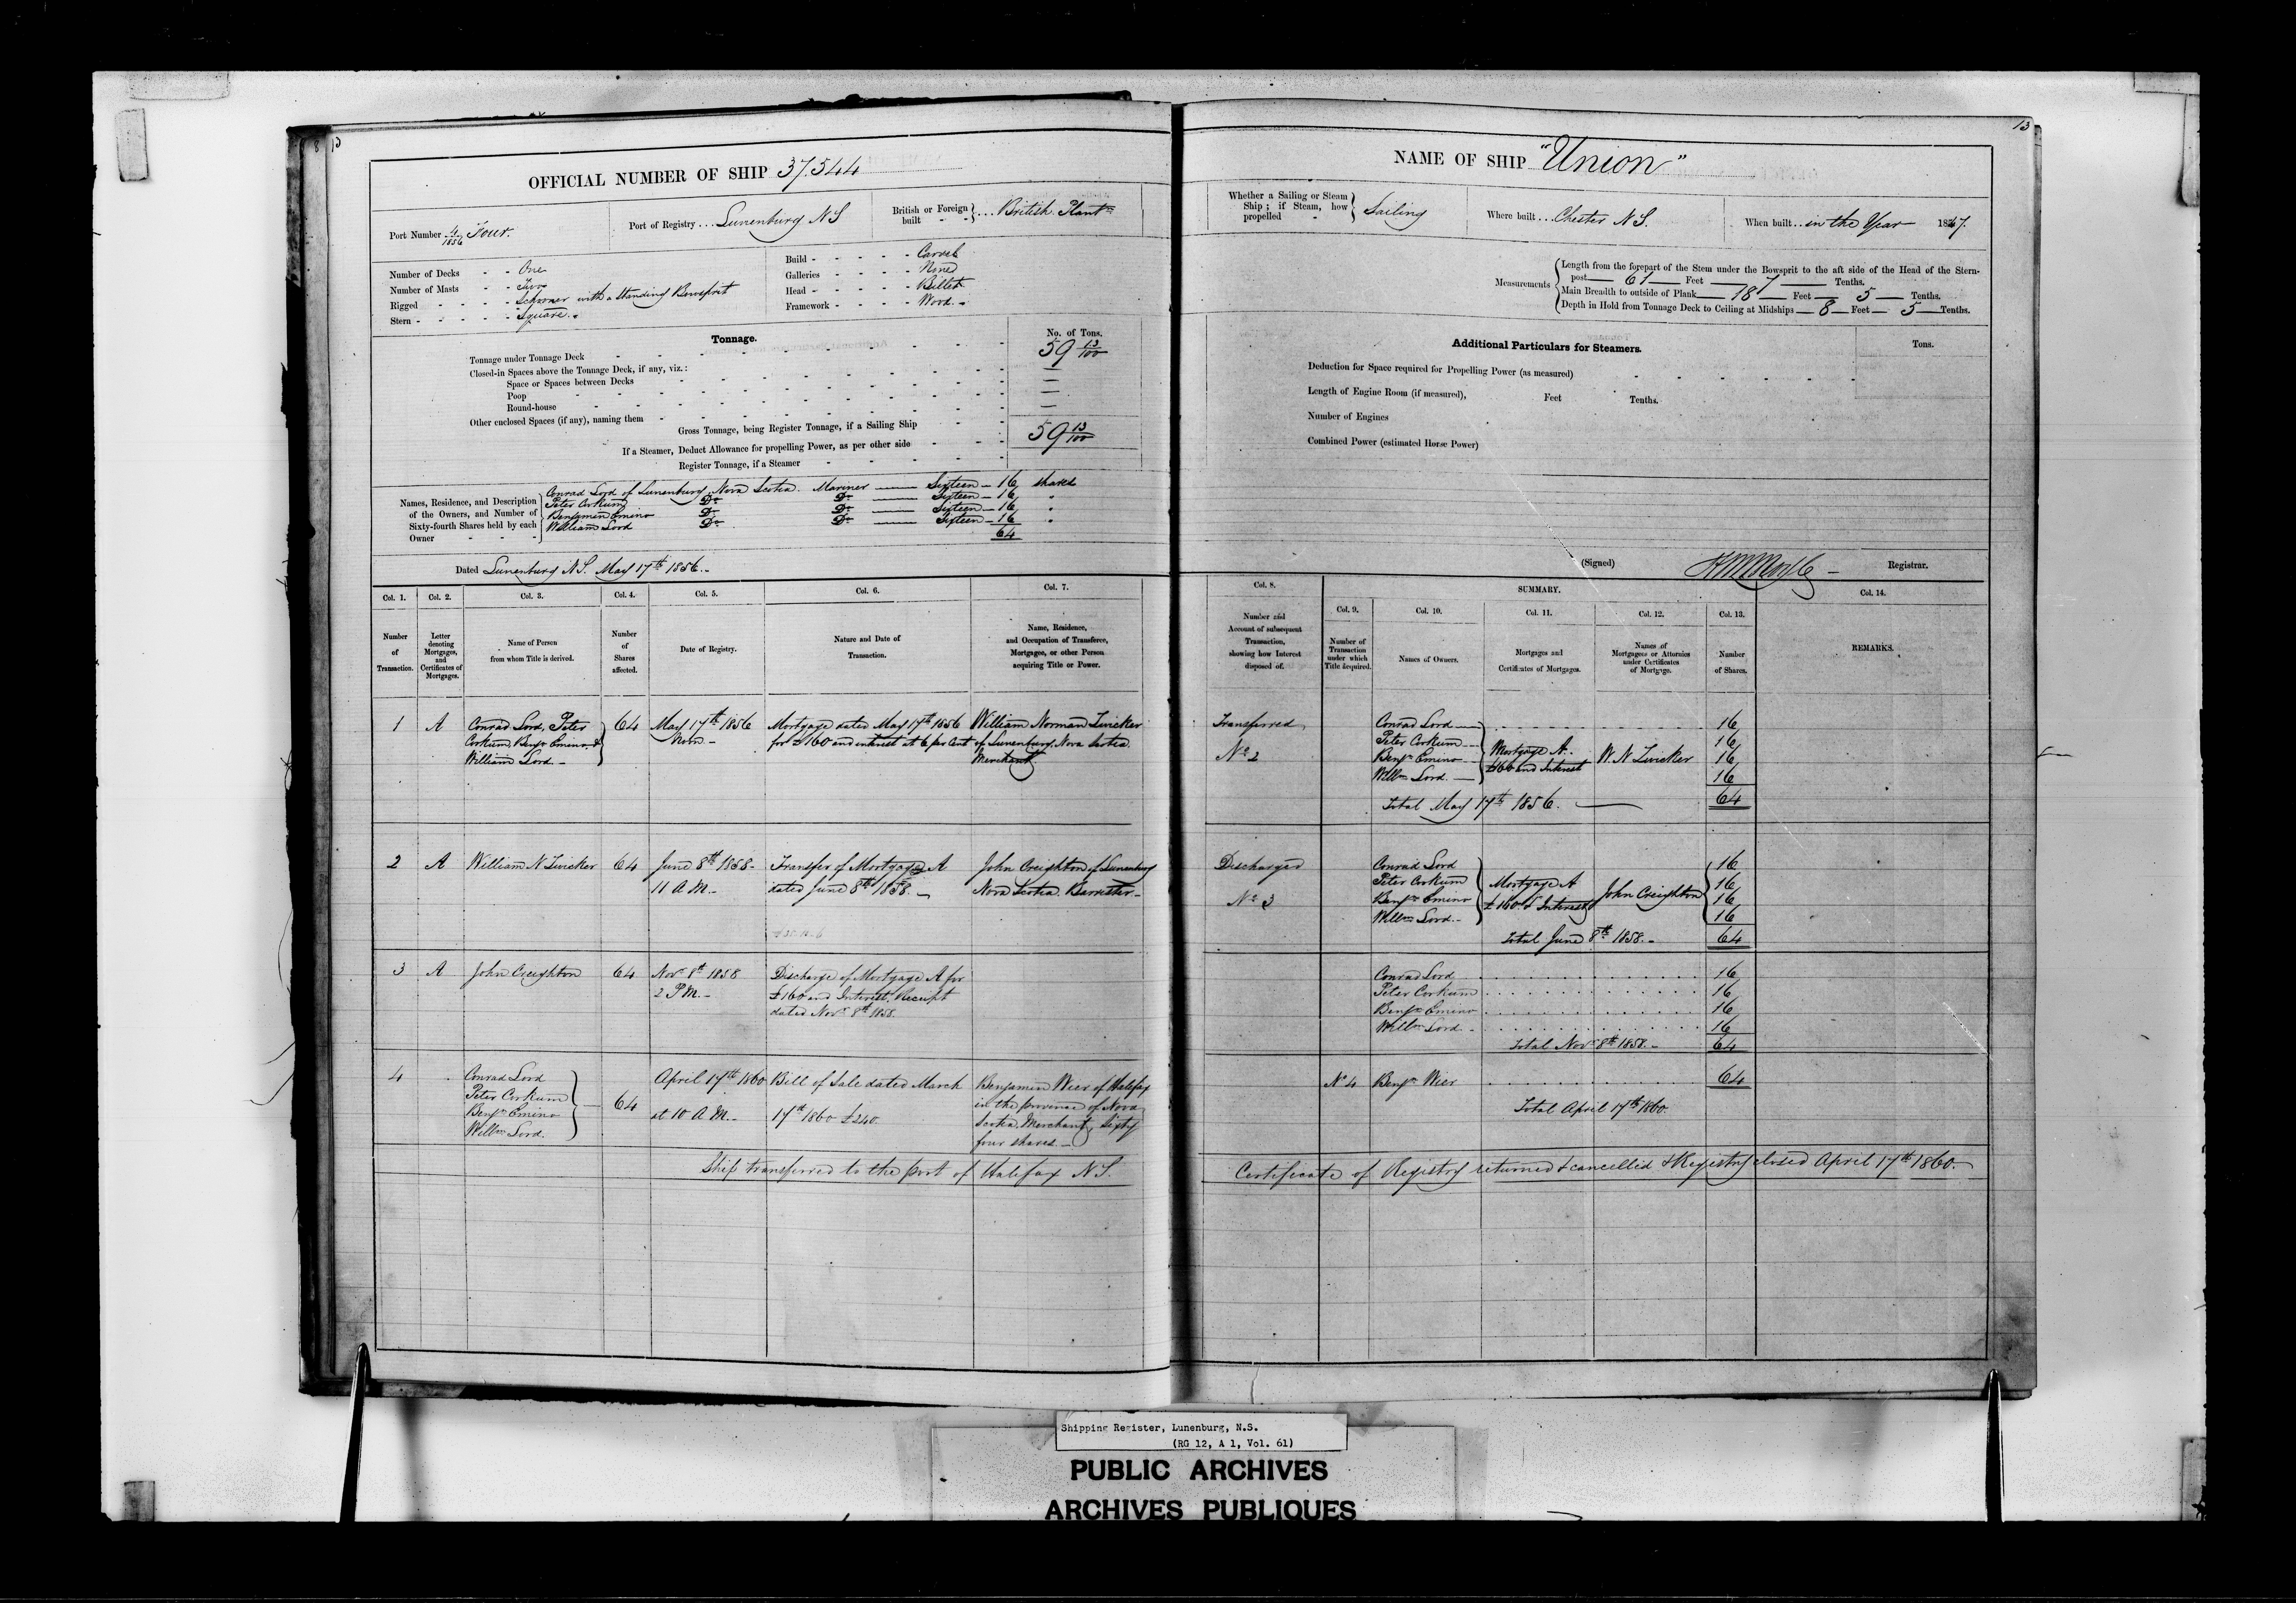 13
OFFICIAL NUMBER OF SHIP 37.544
Port Number 4/1856 Four.
Port of Registry ... Lunenburg N S
British or Foreign built } .... British Plantn
Number of Decks - - One
Number of Masts - - Two
Rigged - - - - Schooner with a Standing Bowsprit
Stern - - - - - Square.
Build - - - - - Carvel
Galleries - - - - None
Head - - - - - Billet
Framework - - - - Wood. -
Tonnage.
No. of Tons.
Tonnage under Tonnage Deck 59 13/100
Closed-in Spaces above the Tonnage Deck, if any, viz.: —
Space or Spaces between Decks —
Poop —
Round-house —
Other enclosed Spaces (if any), naming them
Gross Tonnage, being Register Tonnage, if a Sailing Ship 59 13/100
If a Steamer, Deduct Allowance for propelling Power, as per other side
Register Tonnage, if a Steamer
Names, Residence, and Description of the Owners, and Number of Sixty-fourth Shares held by each Owner
Conrad Lord of Lunenburg, Nova Scotia. Mariner —— Sixteen — 16 shares
Peter Corkum Do Do —— Sixteen — 16 "
Benjamin Emino Do Do —— Sixteen — 16 "
William Lord Do Do —— Sixteen — 16 "
64
Dated Lunenburg N S. May 17th 1856. -
Col. 1.
Number of Transaction.
Col. 2.
Letter denoting Mortgages, and Certificates of Mortgages.
Col. 3.
Name of Person from whom Title is derived.
Col. 4.
Number of Shares affected.
Col. 5.
Date of Registry.
Col. 6.
Nature and Date of Transaction.
Col. 7.
Name, Residence, and Occupation of Transferee, Mortgagee, or other Person acquiring Title or Power.
1 A Conrad Lord, Peter Corkum, Benjn Emino & William Lord. - 64
May 17th 1856 Noon -
Mortgage dated May 17th 1856 for £160 and interest at 6 per Cent
William Norman Zwicker of Lunenburg, Nova Scotia. Merchant
2 A William N Zwicker 64
June 8th 1858 - 11 A M. -
Transfer of Mortgage A dated June 8th 1858. -
John Creighton of Lunenburg Nova Scotia. Barrister. -
3 A John Creighton 64
Novr 8th 1858 2 P M. -
Discharge of Mortgage A for £160 and Interest, Receipt dated Novr 8th 1858.
4 Conrad Lord Peter Corkum Benjn Emino Willm Lord. 64
April 17th 1860 at 10 A M. -
Bill of Sale dated March 17th 1860 £240.
Benjamin Wier of Halifax in the province of Nova Scotia Merchant, Sixty four shares. -
Ship transferred to the port of Halifax N S.
13
NAME OF SHIP "Union"
Whether a Sailing or Steam Ship; if Steam, how propelled } Sailing
Where built ... Chester N S.
When built .. in the Year 1847.
Measurements
Length from the forepart of the Stem under the Bowsprit to the aft side of the Head of the Stern-
post — 61 — Feet — 7 — Tenths.
Main Breadth to outside of Plank — 18 — Feet — 5 — Tenths.
Depth in Hold from Tonnage Deck to Ceiling at Midships — 8 — Feet — 5 — Tenths.
Additional Particulars for Steamers.
Tons.
Deduction for Space required for Propelling Power (as measured)
Length of Engine Room (if measured), Feet Tenths.
Number of Engines
Combined Power (estimated Horse Power)
(Signed) Registrar.
Col. 8.
Number and Account of subsequent Transaction, showing how Interest disposed of.
SUMMARY.
Col. 9.
Number of Transaction under which Title Acquired.
Col. 10.
Names of Owners.
Col. 11.
Mortgages and Certificates of Mortgages.
Col. 12.
Names of Mortgagees or Attornies under Certificates of Mortgage.
Col. 13.
Number of Shares.
Col. 14.
REMARKS.
Transferred No 2
Conrad Lord — 16
Peter Corkum — 16
Benjn Emino — 16
Willm Lord. — 16
Mortgage A. £160 and Interest
W. N Zwicker
Total May 17th 1856. — 64
Discharged No 3
Conrad Lord 16
Peter Corkum 16
Benjn Emino 16
Willm Lord. - 16
Mortgage A £160 & Interest
John Creighton
Total June 8th 1858. - 64
Conrad Lord 16
Peter Corkum 16
Benjn Emino 16
Willm Lord - 16
Total Novr 8th 1858. - 64
No 4 Benjn Wier 64
Total April 17th 1860
Certificate of Registry returned & cancelled & Registry closed April 17th 1860. -
Shipping Register, Lunenburg, N.S.
(RG 12, A 1, Vol. 61)
PUBLIC ARCHIVES
ARCHIVES PUBLIQUES